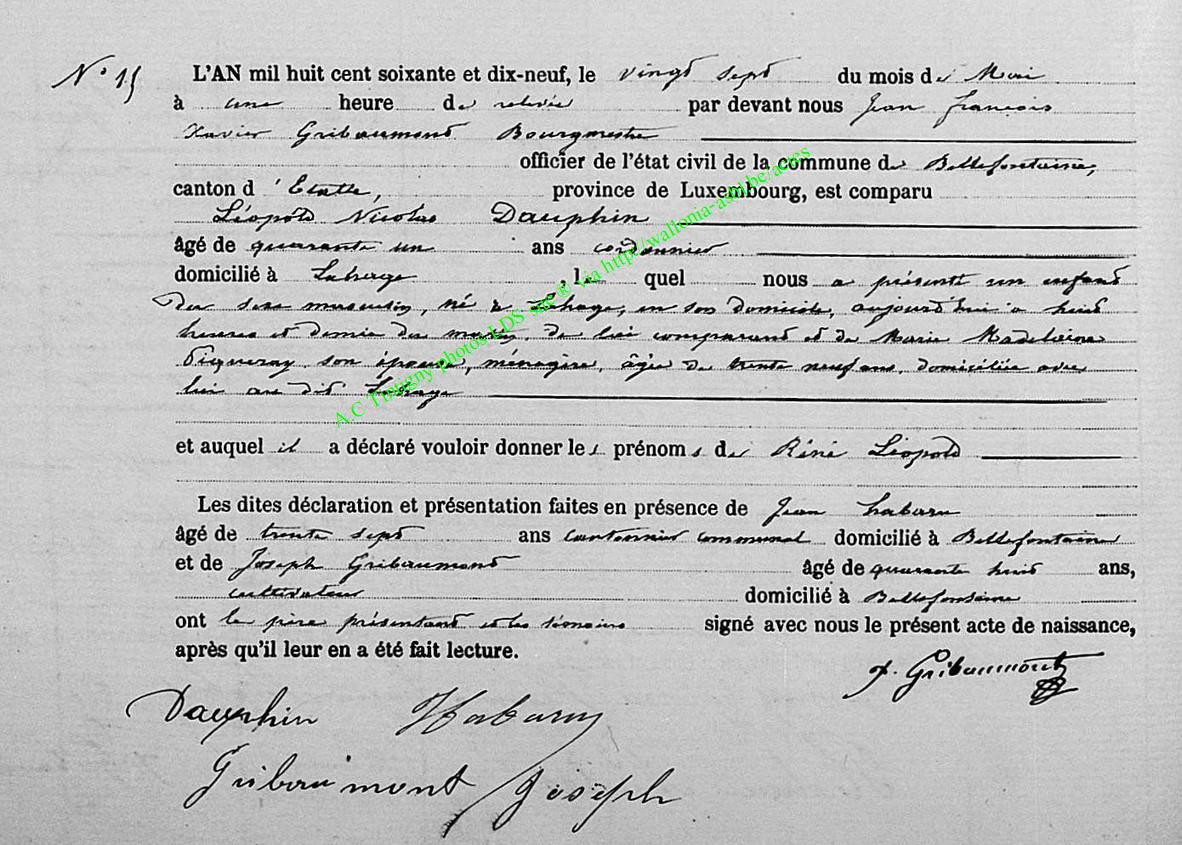 N° 15
L'AN mil huit cent soixante et dix-neuf, le vingt sept du mois de Mai
à une heure de relevée par devant nous Jean François
Xavier Gribaumont Bourgmestre
officier de l'état civil de la commune de Bellefontaine,
canton d'Etalle, province de Luxembourg, est comparu
Léopold Nicolas Dauphin
âgé de quarante un ans cordonnier
domicilié à Lahage, le quel nous a présenté un enfant
du sexe masculin, né à Lahage, en son domicile, aujourd'hui à huit
heures et demie du matin, de lui comparant et de Marie Madeleine
Piqueray son épouse, ménagère, âgée de trente neuf ans, domiciliée avec
lui au dit Lahage
et auquel il a déclaré vouloir donner les prénoms de Réné Léopold
Les dites déclaration et présentation faites en présence de Jean Habaru
âgé de trente sept ans cantonnier communal domicilié à Bellefontaine
et de Joseph Gribaumont âgé de quarante huit ans,
cultivateur domicilié à Bellefontaine
ont le père présentant et les témoins signé avec nous le présent acte de naissance,
après qu'il leur en a été fait lecture.
Gribaumont
Dauphin Habaru
Gribaumont Joseph
A.C Tintigny photos LDS site® via http://wallonia-asbl.be/actes